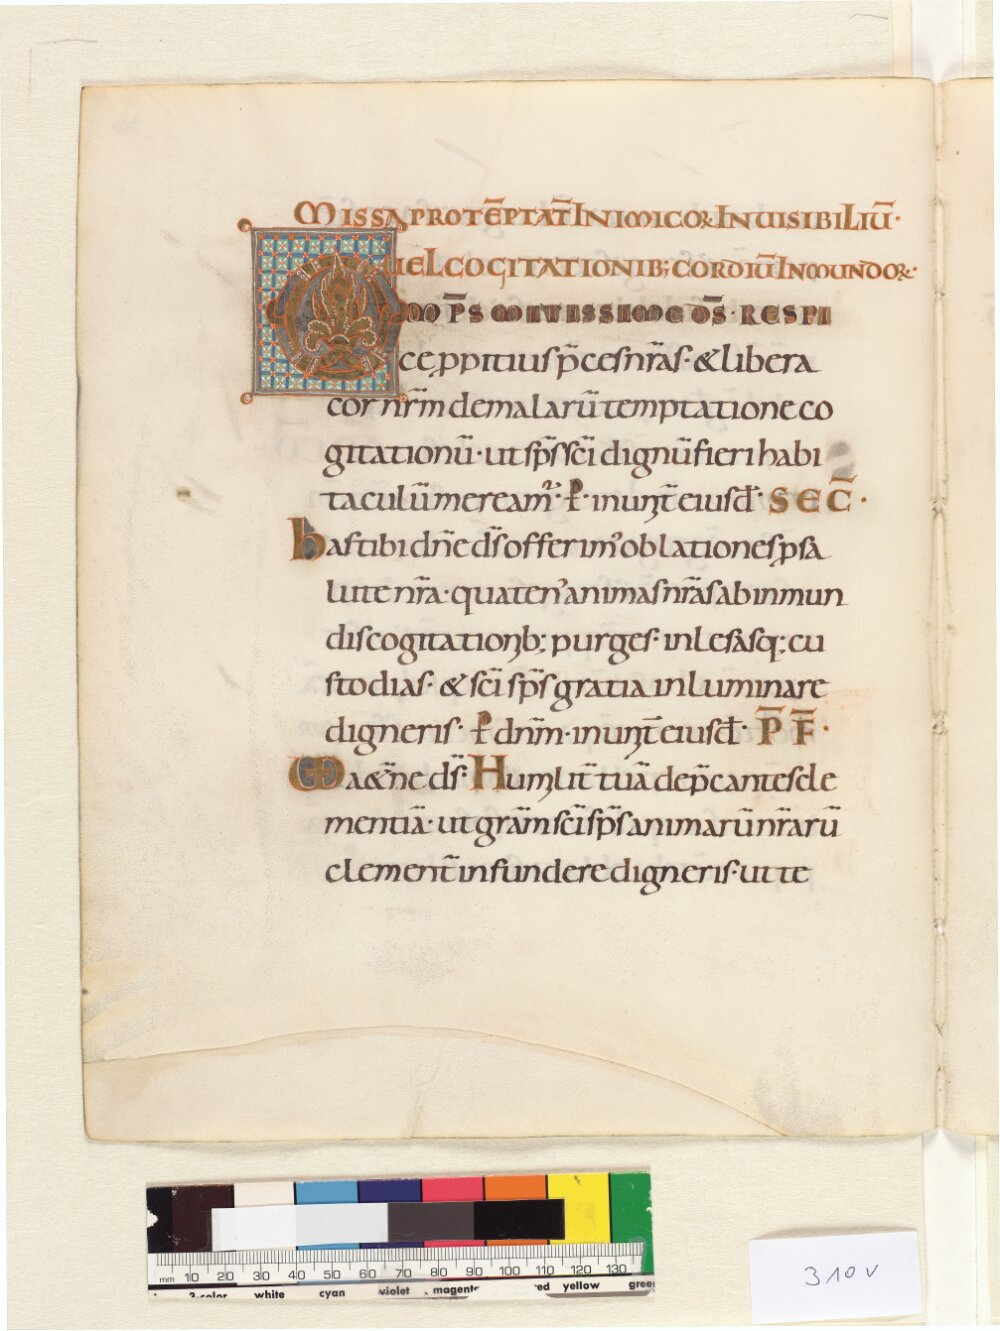 MISSA PRO TEPTAT̄ INIMICOꝜ INUISIBILIŪ·
UEL COGITATIONIB; CORDIŪ INMUNDOꝜ·
OMP̄S MITISSIME DS̄· RESPI
CE ppitius p̄ces nr̄as· & libera
cor nr̄m de malarū temptatione co
gitationū· ut sp̄s sc̄i dignū fieri habi
taculū meream᷑· P· in unit̄ eiusd̄· SEC̄·
Has tibi dn̄e ds̄ offerim᾽ oblationes p sa
lute nr̄a· quaten᾽ animas nr̄as ab inmun
dis cogitationib; purges· inlesasq; cu
stodias· & sc̄i sp̄s gratia inluminare
digneris· P dnm̄· in unit̄ eiusd̄· P̄F̄·
UD aet̄ne ds̄· Humilit̄ tuā dep̄cantes cle
mentiā· ut gr̄am sc̄i sp̄s animarū nr̄arū
clement̄ infundere digneris· ut te
mm 10 20 30 40 50 60 70 80 90 100 110 120 130
3-color white cyan violet magenta red yellow green
310 v